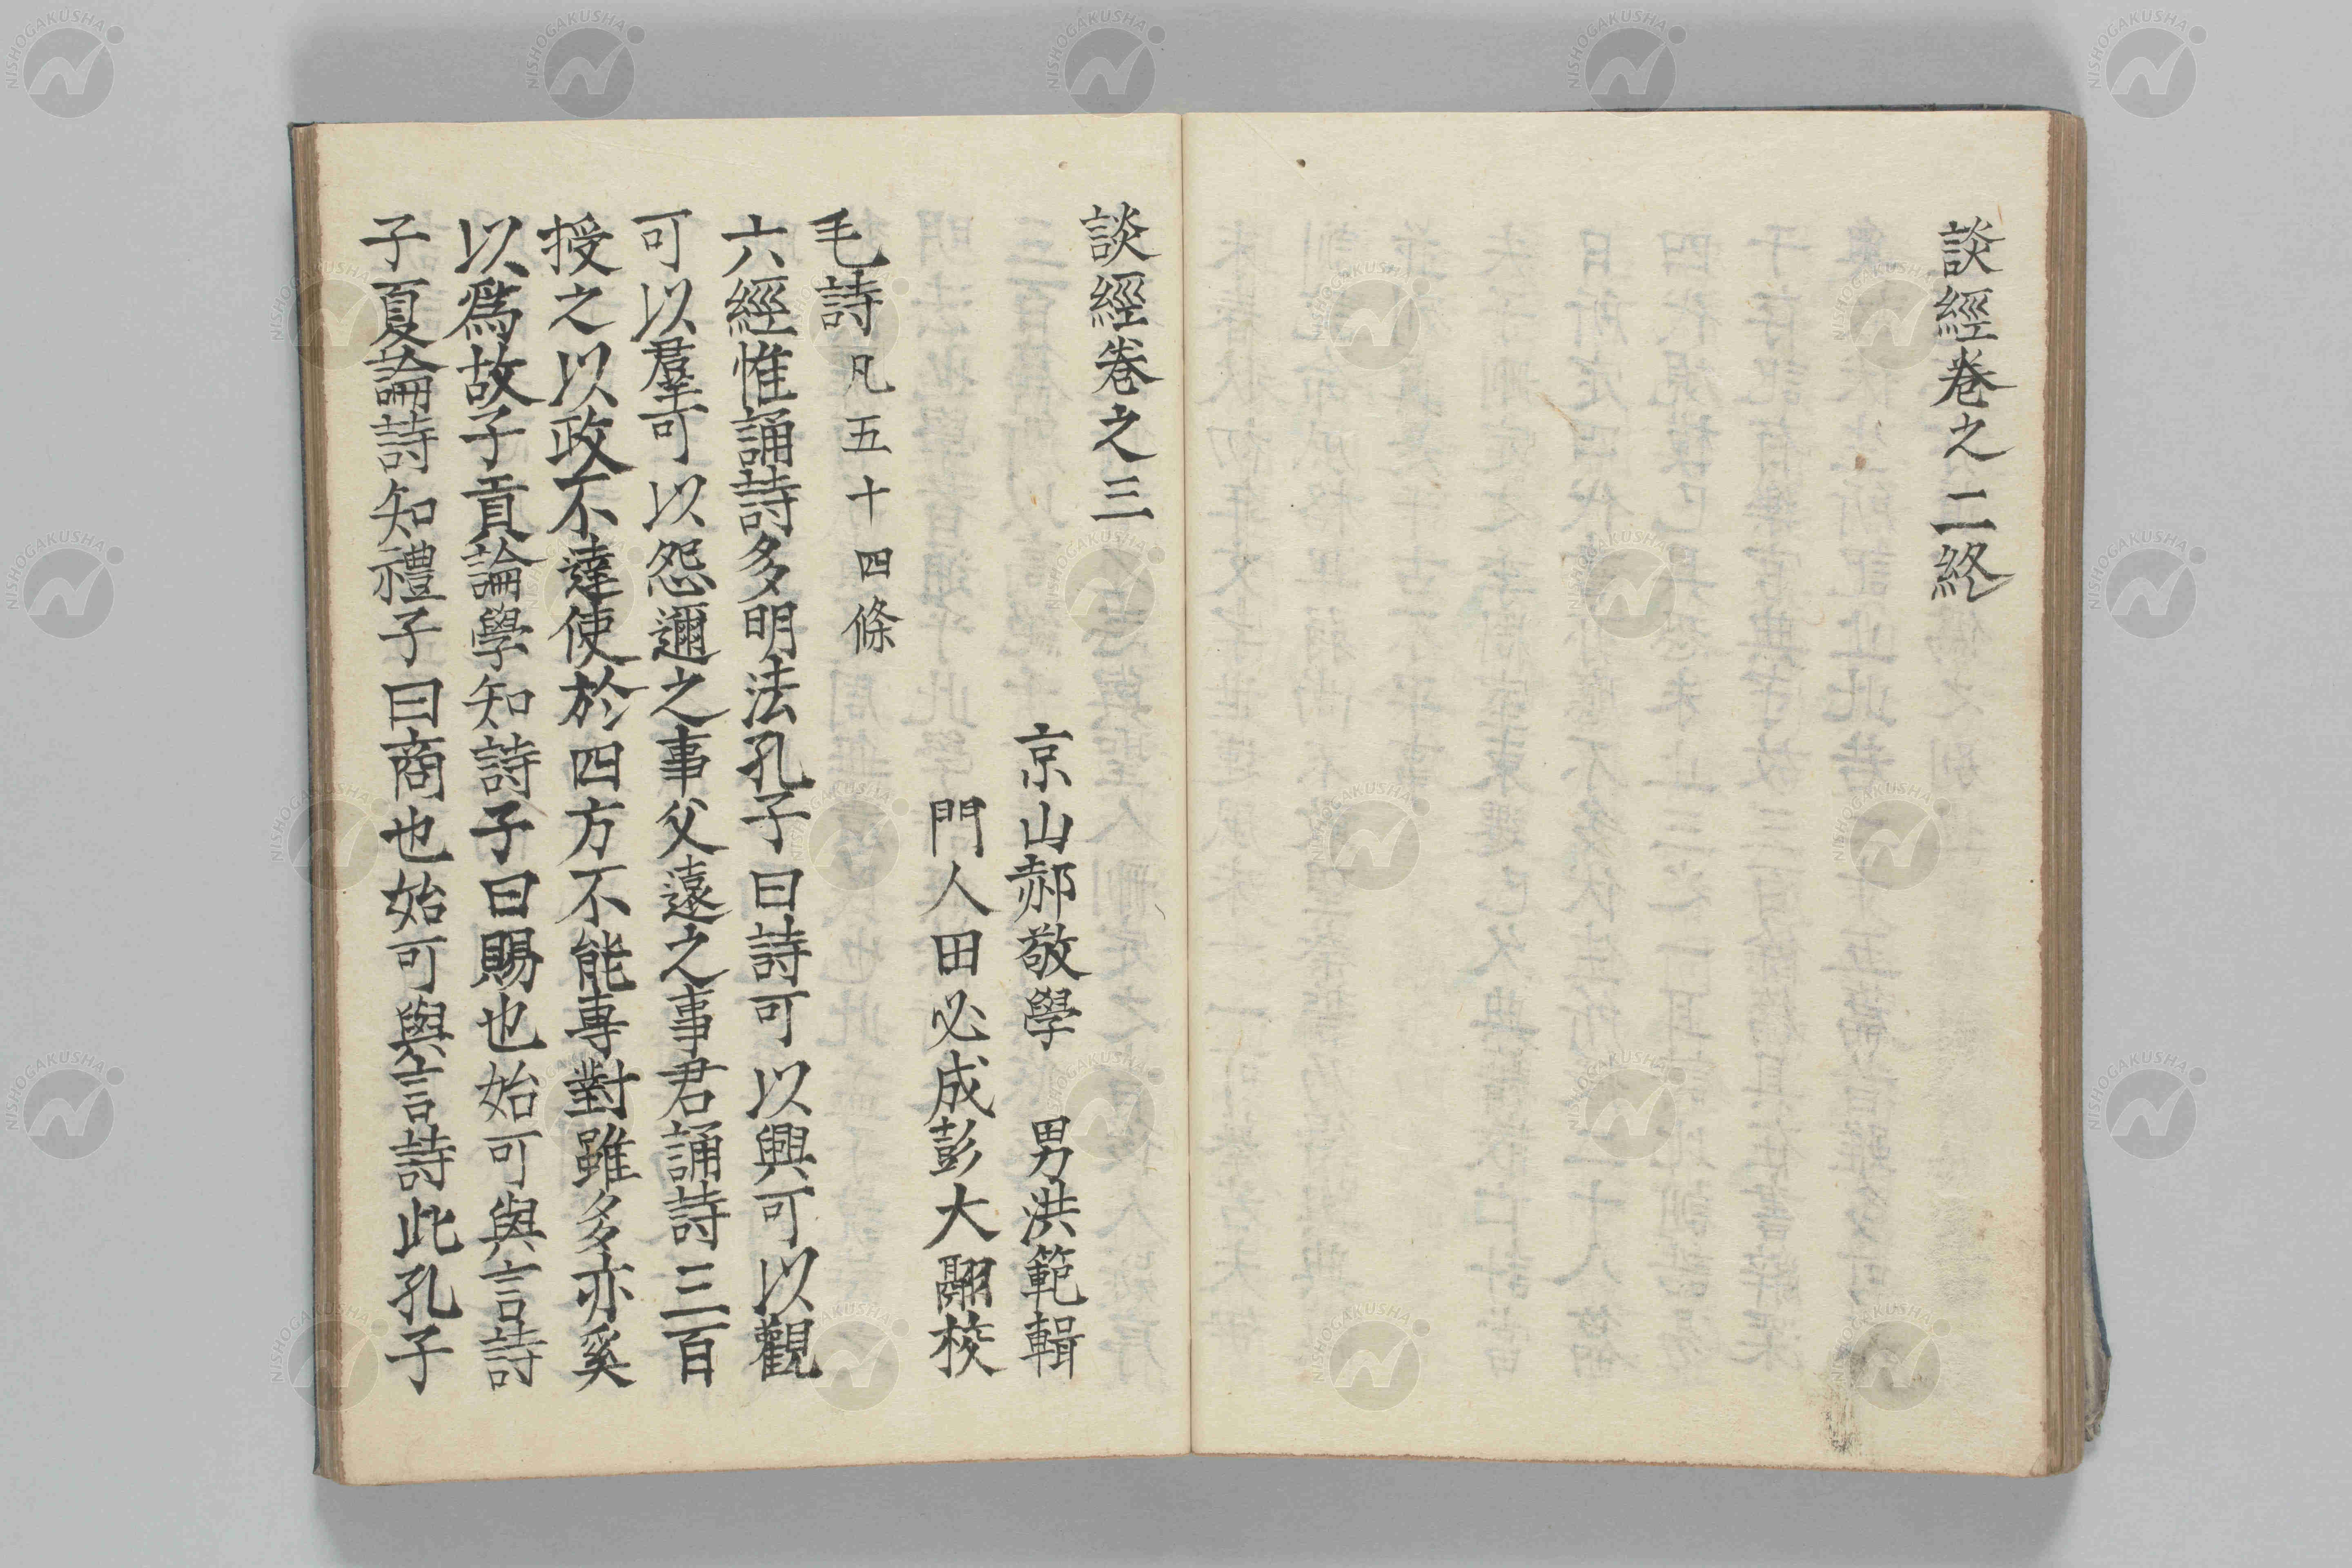 談經卷之二終
談經卷之三
京山郝敬學 男洪範輯
門人田必成彭大翮校
毛詩凡五十四條
六經惟誦詩多明法孔子曰詩可以興可以觀
可以羣可以怨邇之事父遠之事君誦詩三百
授之以政不達使於四方不能專對雖多亦奚
以爲故子貢論學知詩子曰賜也始可與言詩
子夏論詩知禮子曰商也始可與言詩此孔子